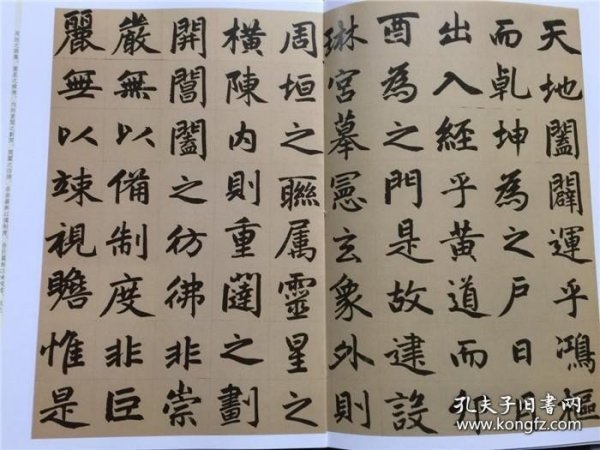 天地闔闢運乎鴻樞
而乹坤為之户日月
出入經乎黃道而卯
酉為之門是故建設
琳宮摹憲玄象外則
周垣之聯属靈星之
横陳内則重闥之劃
開閶闔之彷彿非崇
嚴無以備制度非巨
麗無以竦視瞻惟是
孔夫子旧书网
www.kongfz.com